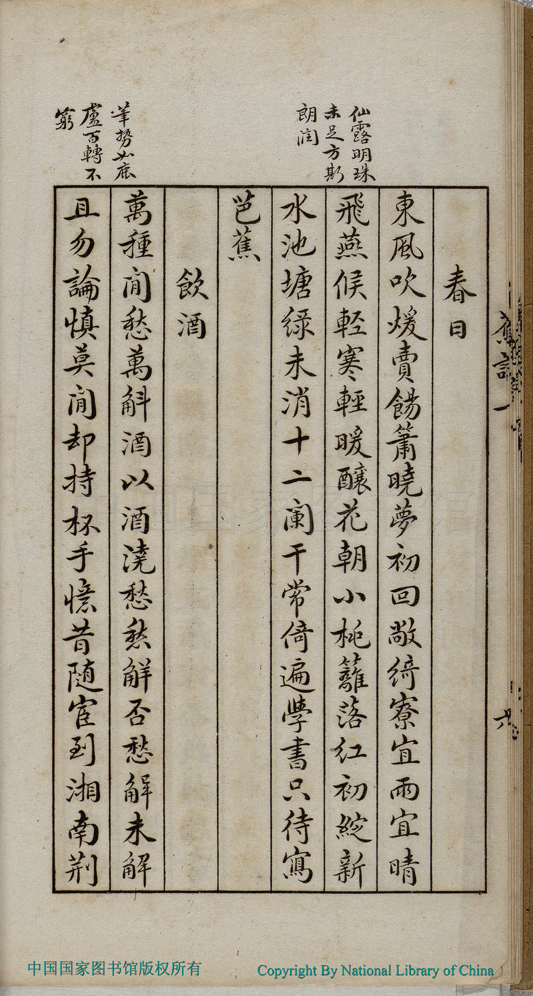 仙露明珠
未足方斯
朗潤
筆勢如底
盧百轉不
窮
春日
東風吹煖賣餳簫曉夢初回敞綺寮宜雨宜晴
飛燕候輕寒輕暖釀花朝小桃籬落紅初綻新
水池塘綠未消十二闌干常倚遍學書只待寫
芭蕉
飲酒
萬種閒愁萬斛酒以酒澆愁愁解否愁解未解
且勿論慎莫閒却持杯手憶昔隨宦到湘南荆
中国国家图书馆版权所有
Copyright By National Library of China